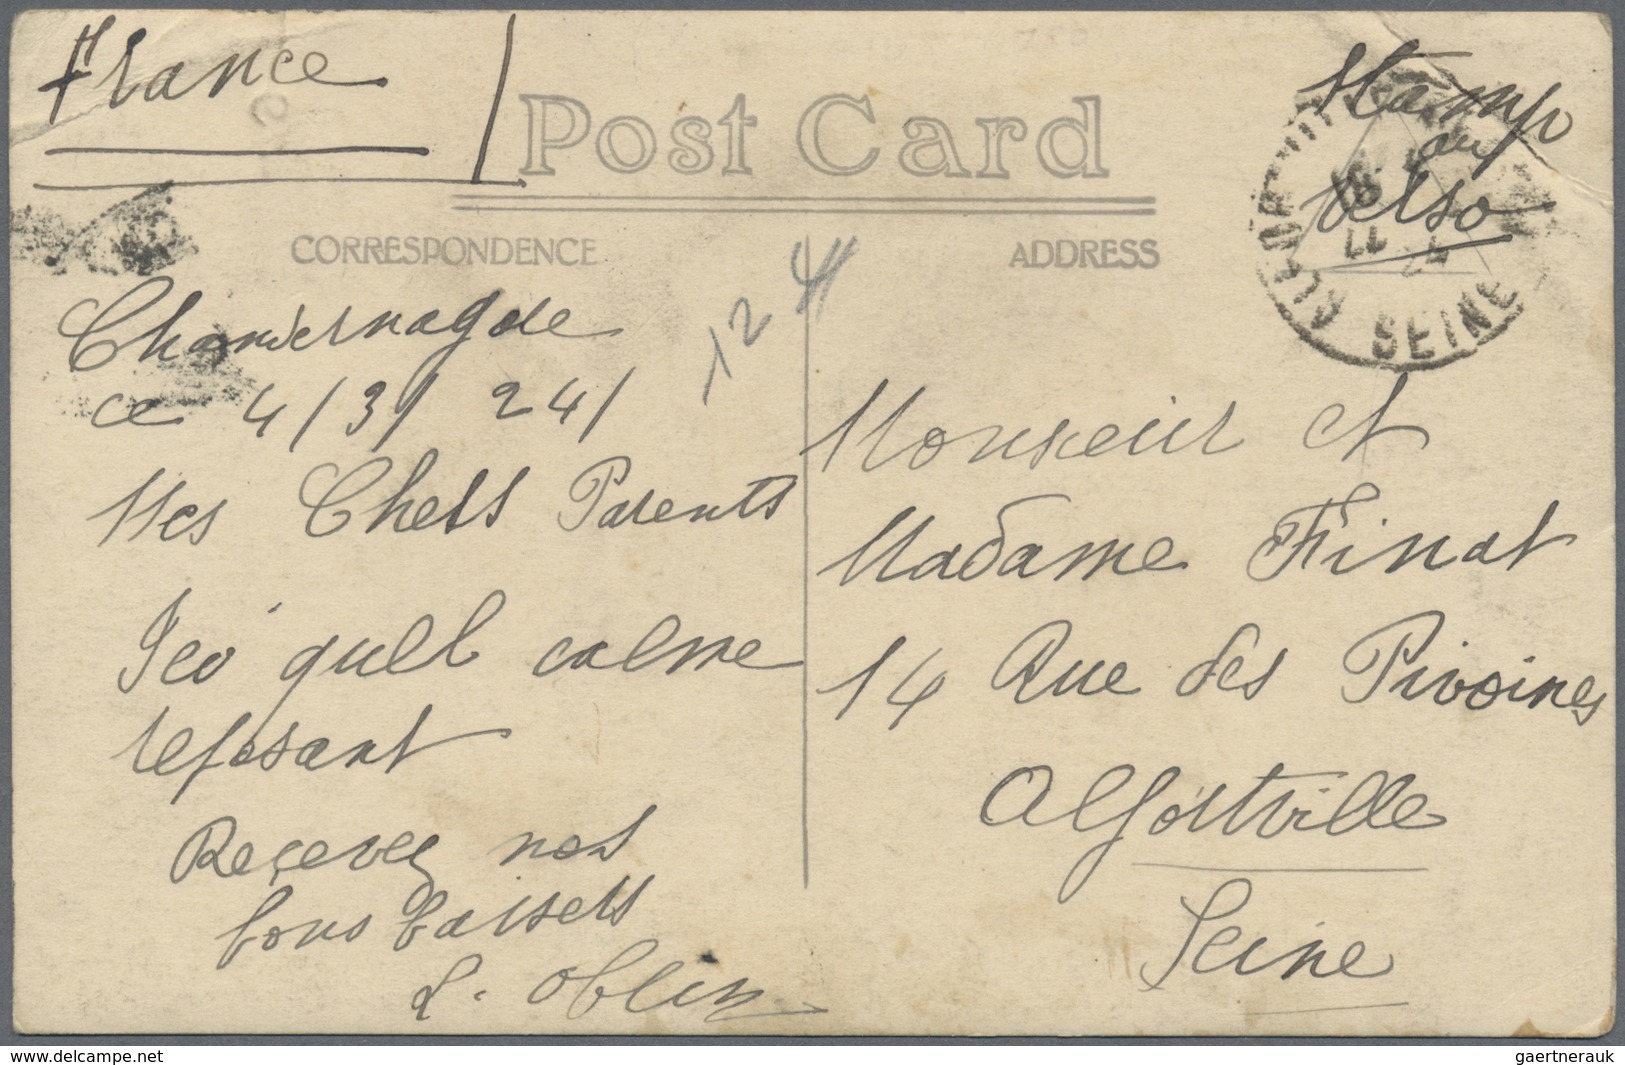 France
Post Card
Stamp
au
verso
CORRESPONDENCE
ADDRESS
SEINE
Chandernagor
ce 4/3/24/
12
Mes Chers Parents
Ici quel calme
reposant
Recevez nos
bons baisers
L. Oblin
Monsieur et
Madame Finat
14 Rue des Pivoines
Alfortville
Seine
delcampe.net
gaertnerauk